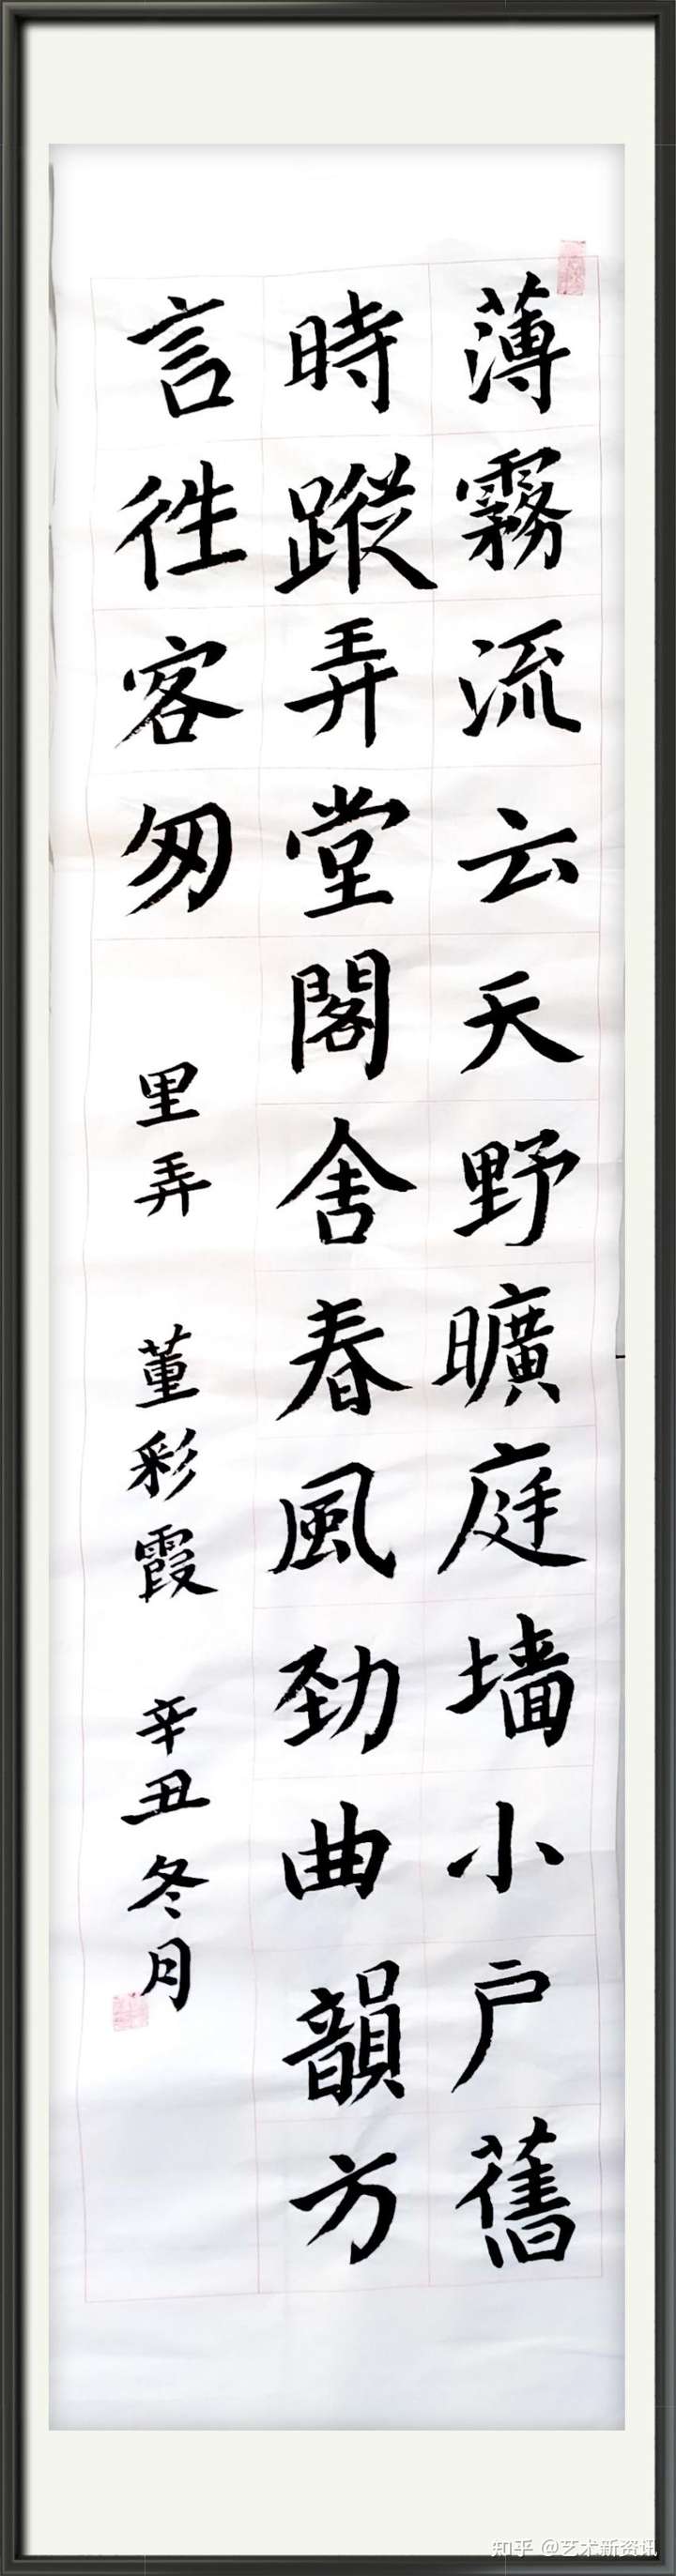 薄霧流云天野曠庭墙小户舊
時蹤弄堂閣舍春風劲曲韻方
言徃客匆
里弄 董彩霞 辛丑冬月
知乎 @艺术新资讯